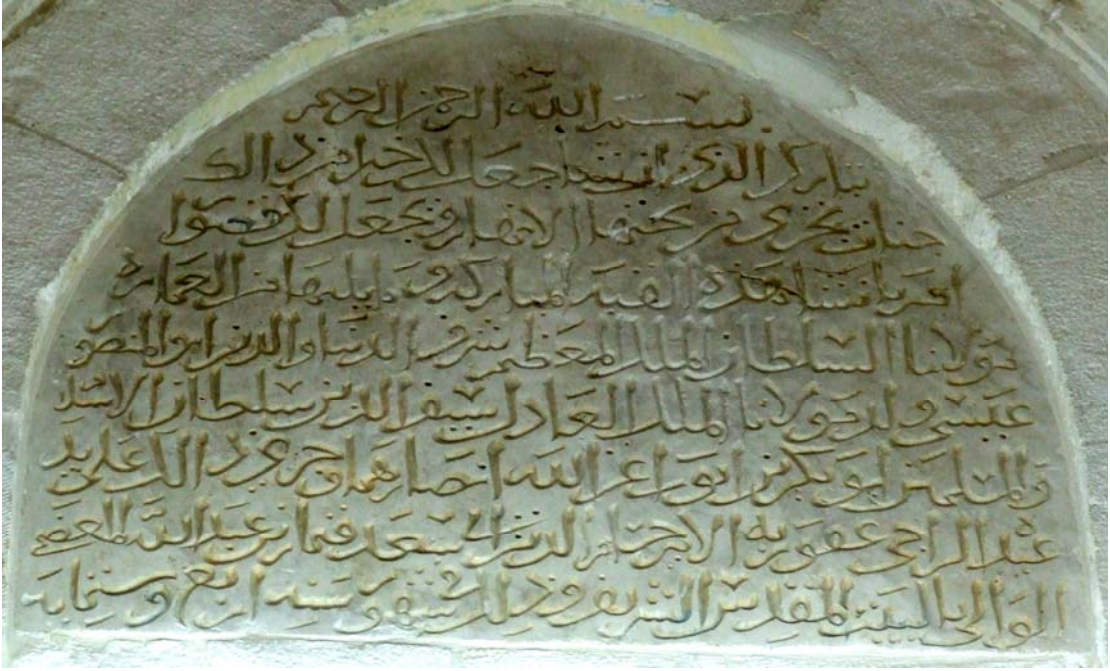 بسم الله الرحمن الرحيم
تبارك الذي ان شا جعل لك خيرا من ذالك
جنات تجري من تحتها الانهار ويجعل لك قصورا
امر بانشا هذه القبة المباركة وما يليها من العمارة
مولانا السلطان الملك المعظم شرف الدنيا والدين ابو المنصور
عيسى ولد مولانا الملك العادل سيف الدين سلطان الاسلام
والمسلمين ابو بكر بن ايوب اعز الله انصارهما وجرى ذلك على يد
عبده الراجي عفو ربه الامير حسام الدين ابي سعد قيماز بن عبد الله المعظمي
الوالي بالبيت المقدس الشريف وذلك في شهور سنة اربع وستماية